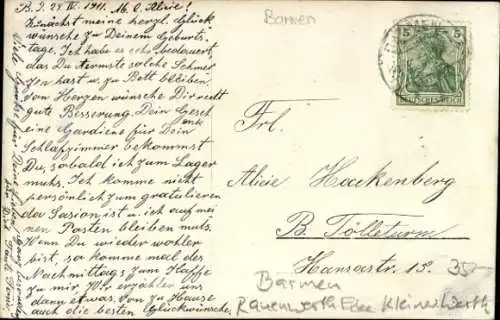 B. d. 28 IV. 1911. M. l. Alzie!
Zunächst meine herzl. Glück
wünsche zu Deinem Geburts-
tage. Ich habe es sehr bedauert
das Du Aermste solche Schmer
zen hast u. zu Bett bleiben.
von Herzen wünsche Dir recht
gute Besserung. Dein Gesch
enk
eine Gardiene für Dein
Schlafzimmer bekommst
Du, sobald ich zum Lager
muhs. Ich komme nicht
persönlich zum gratulieren
da Sasion ist u. ich auf mei
nen Posten bleiben muhs.
Wenn Du wieder wohler
bist, so komme mal des
Nachmittags zum Kaffe
zu mir, wir erzählen uns
dann etwas. Von zu Hause
auch die besten Glückwünsche.
Viele Grüße
Barmen
5 5
DEUTSCHES REICH
Frl.
Alicie Hackenberg
B. Tölleturm
Hansastr. 18.
35-
Barmen
Rauenwerth Ecke Kleinerwerth